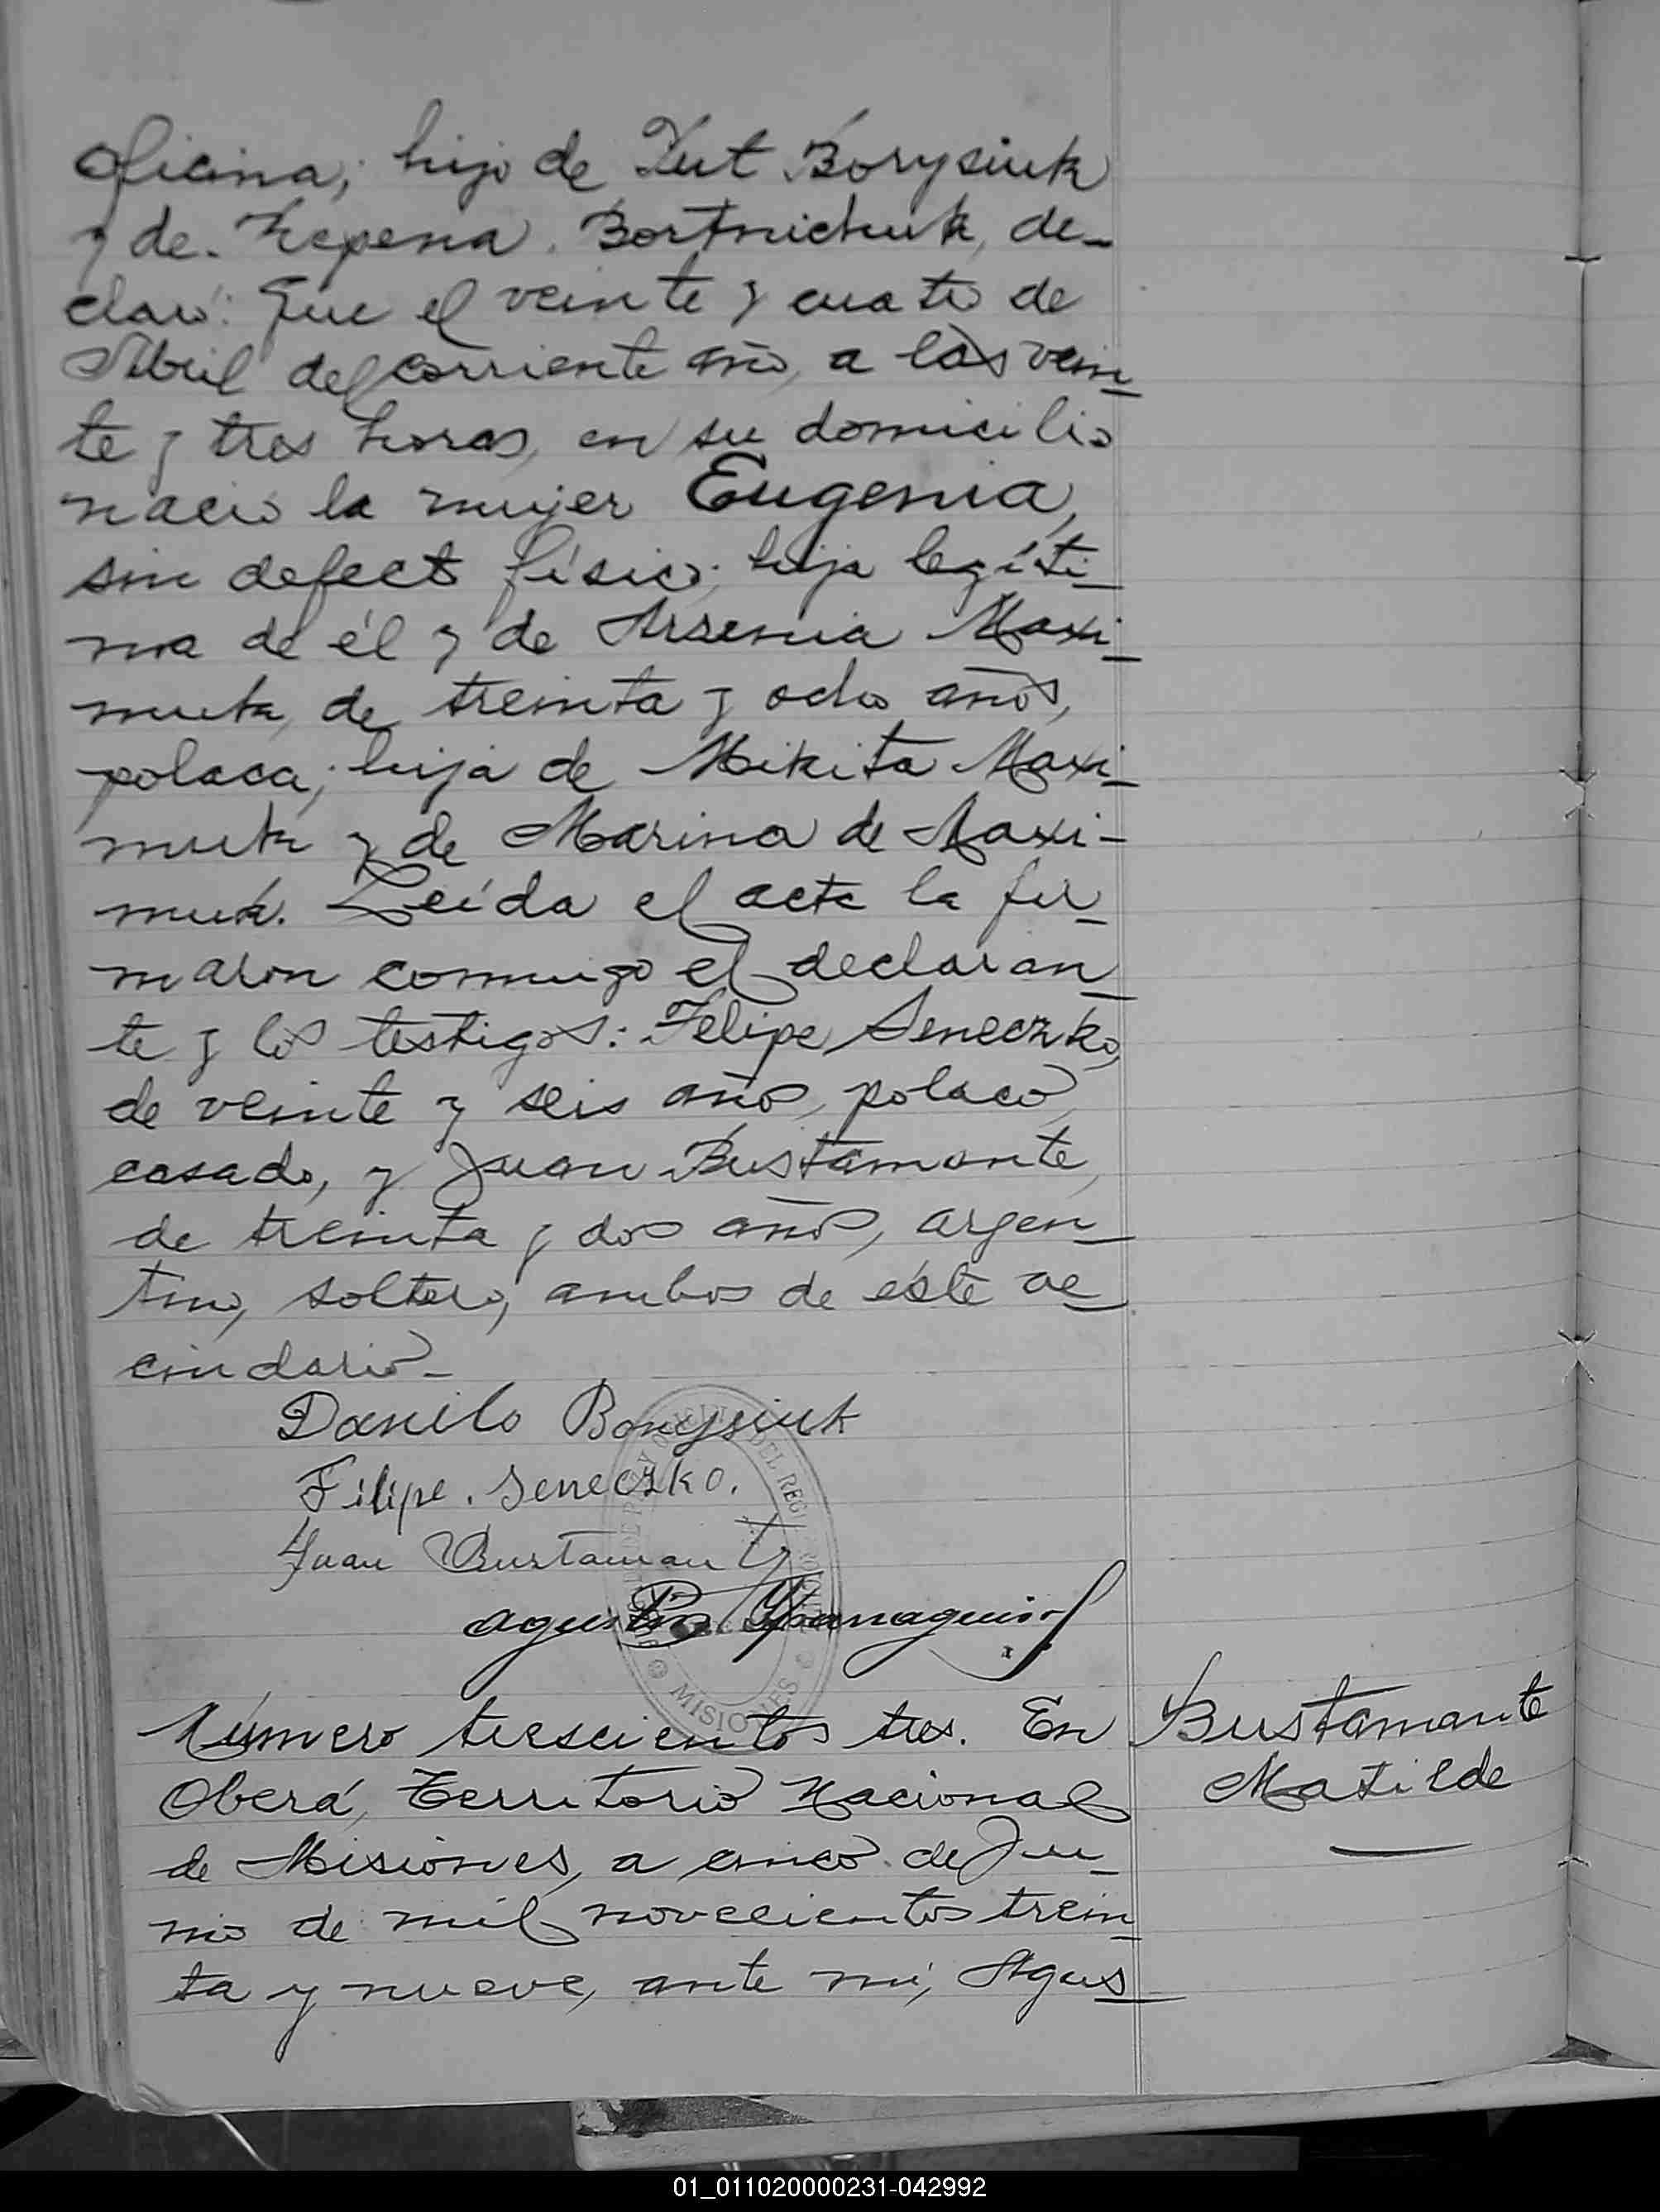 oficina; hijo de Borysiuk
y de Bortnichuk, de-
claró: Que el veinte y cuatro de
Abril del corriente año, a las vein_
te y tres horas, en su domicilio
nació la mujer Eugenia,
sin defecto físico; hija legíti_
ma de él y de Arsenia Maxi_
muk, de treinta y ocho años,
polaca; hija de Mikita Maxi_
muk y de Marina de Maxi-
muk. Leída el acta la fir_
maron conmigo el declaran_
te y los testigos: Felipe Seneczko,
de veinte y seis años, polaco,
casado, y Juan Bustamante,
de treinta y dos años, argen_
tino, soltero, ambos de éste ve_
cindario_
Danilo Borysiuk
Filipe. Seneczko.
Juan Bustamante
Agustin
MISIONES
Número trescientos tres. En
Oberá, Territorio Nacional
de Misiones, a cinco de Ju_
nio de mil novecientos trein_
ta y nueve, ante mí, Agus_
Bustamante
Matilde
01_011020000231-042992